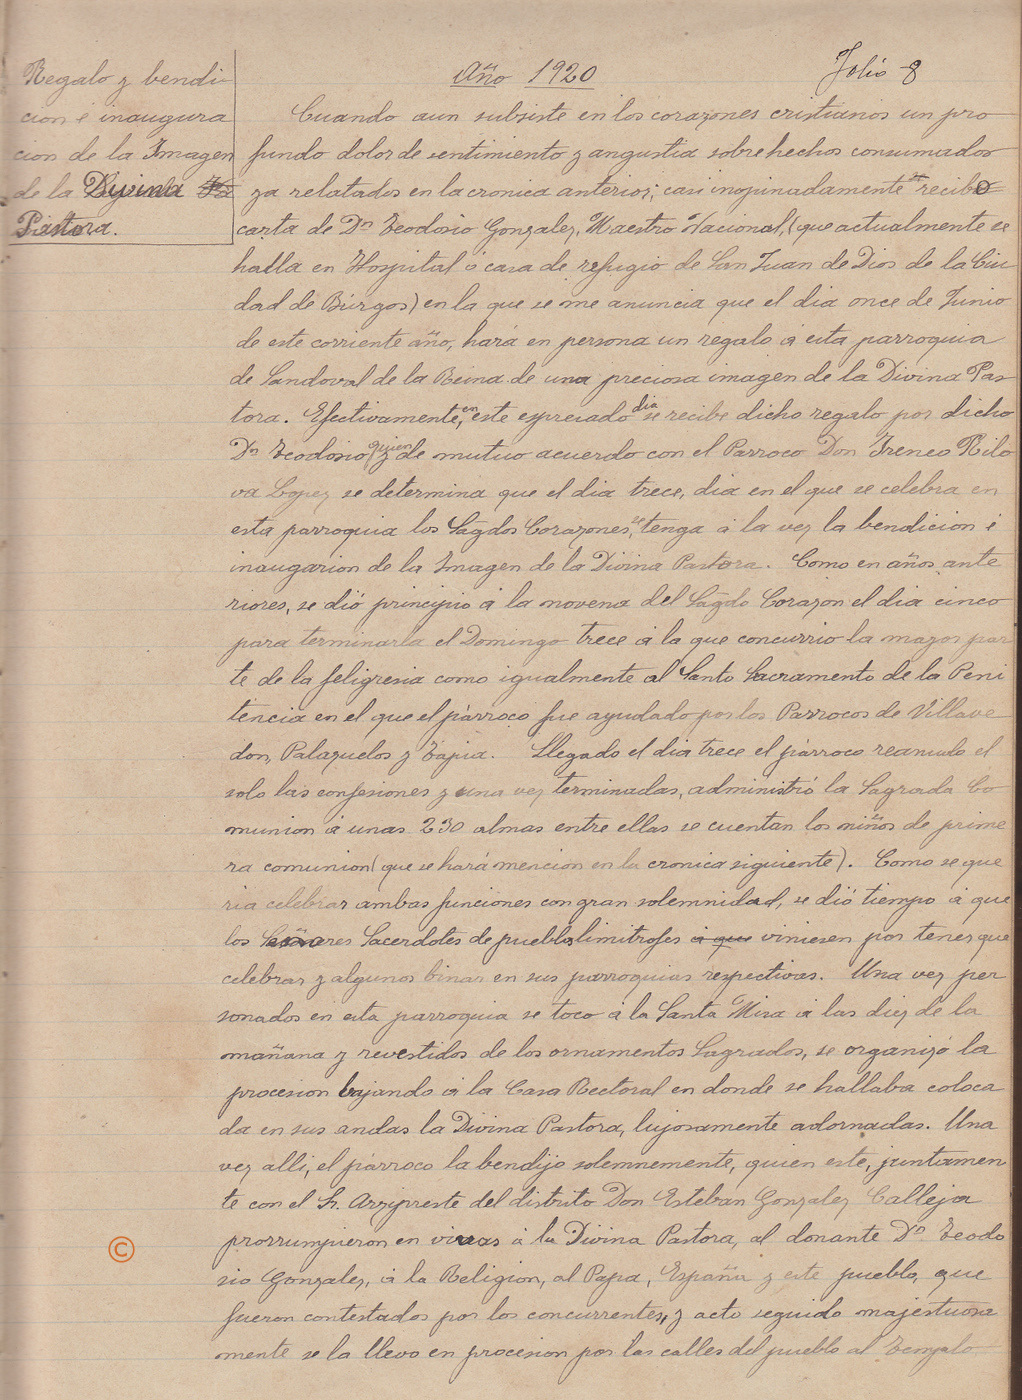 Año 1920
Jolio 8
Regalo y bendi-
cion é inaugura
cion de la Imagen
de la Divina
Pastora.
Cuando aun subsiste en los corazones cristianos un pro
fundo dolor de sentimiento y angustia sobre hechos consumados
ya relatados en la cronica anterior; casi inopinadamente recibo
carta de Dn Teodosio Gonzalez, Maestro Nacional, (que actualmente se
halla en Hospital ó casa de refugio de San Juan de Dios de la Ciu-
dad de Búrgos) en la que se me anuncia que el dia once de Junio
de este corriente año, hará en persona un regalo á esta parroquia
de Sandoval de la Reina de una preciosa imagen de la Divina Pas-
tora. Efectivamente, en este expresado dia se recibe dicho regalo por dicho
Dn Teodosio quien y de mutuo acuerdo con el Parroco Don Ireneo Rilo
va Lopez se determina que el dia trece, dia en el que se celebra en
esta parroquia los Sagdos Corazones, se tenga á la vez la bendicion é
inaugarion de la Imagen de la Divina Pastora. Como en años ante
riores, se dió principio á la novena del Sagdo Corazon el dia cinco
para terminarla el Domingo trece á la que concurrio la mayor par
te de la feligresia como igualmente al Santo Sacramento de la Peni
tencia en el que el párroco fue ayudado por los Parrocos de Villave
don, Palazuelos y Tapia. Llegado el dia trece el párroco reanudo el
solo las confesiones y una vez terminadas, administró la Sagrada Co
munion á unas 230 almas entre ellas se cuentan los niños de prime
ra comunion (que se hará mencion en la cronica siguiente). Como se que
ria celebrar ambas funciones con gran solemnidad, se dió tiempo á que
los Señores Sacerdotes de pueblos limitrofes á que viniesen por tener que
celebrar y algunos binar en sus parroquias respectivas. Una vez per
sonados en esta parroquia se toco á la Santa Misa á las diez de la
mañana y revestidos de los ornamentos Sagrados, se organizó la
procesion bajando á la Casa Rectoral en donde se hallaba coloca
da en sus andas la Divina Pastora, lujosamente adornadas. Una
vez alli, el párroco la bendijo solemnemente, quien este, juntamen
te con el Sr. Arzipreste del distrito Don Esteban Gonzalez Calleja
prorrumpieron en vivas á la Divina Pastora, al donante Dn Teodo
sio Gonzalez, á la Religion, al Papa, España y este pueblo, que
fueron contestados por los concurrentes, y acto seguido majestuosa
mente se la llevo en procesion por las calles del pueblo al Templo